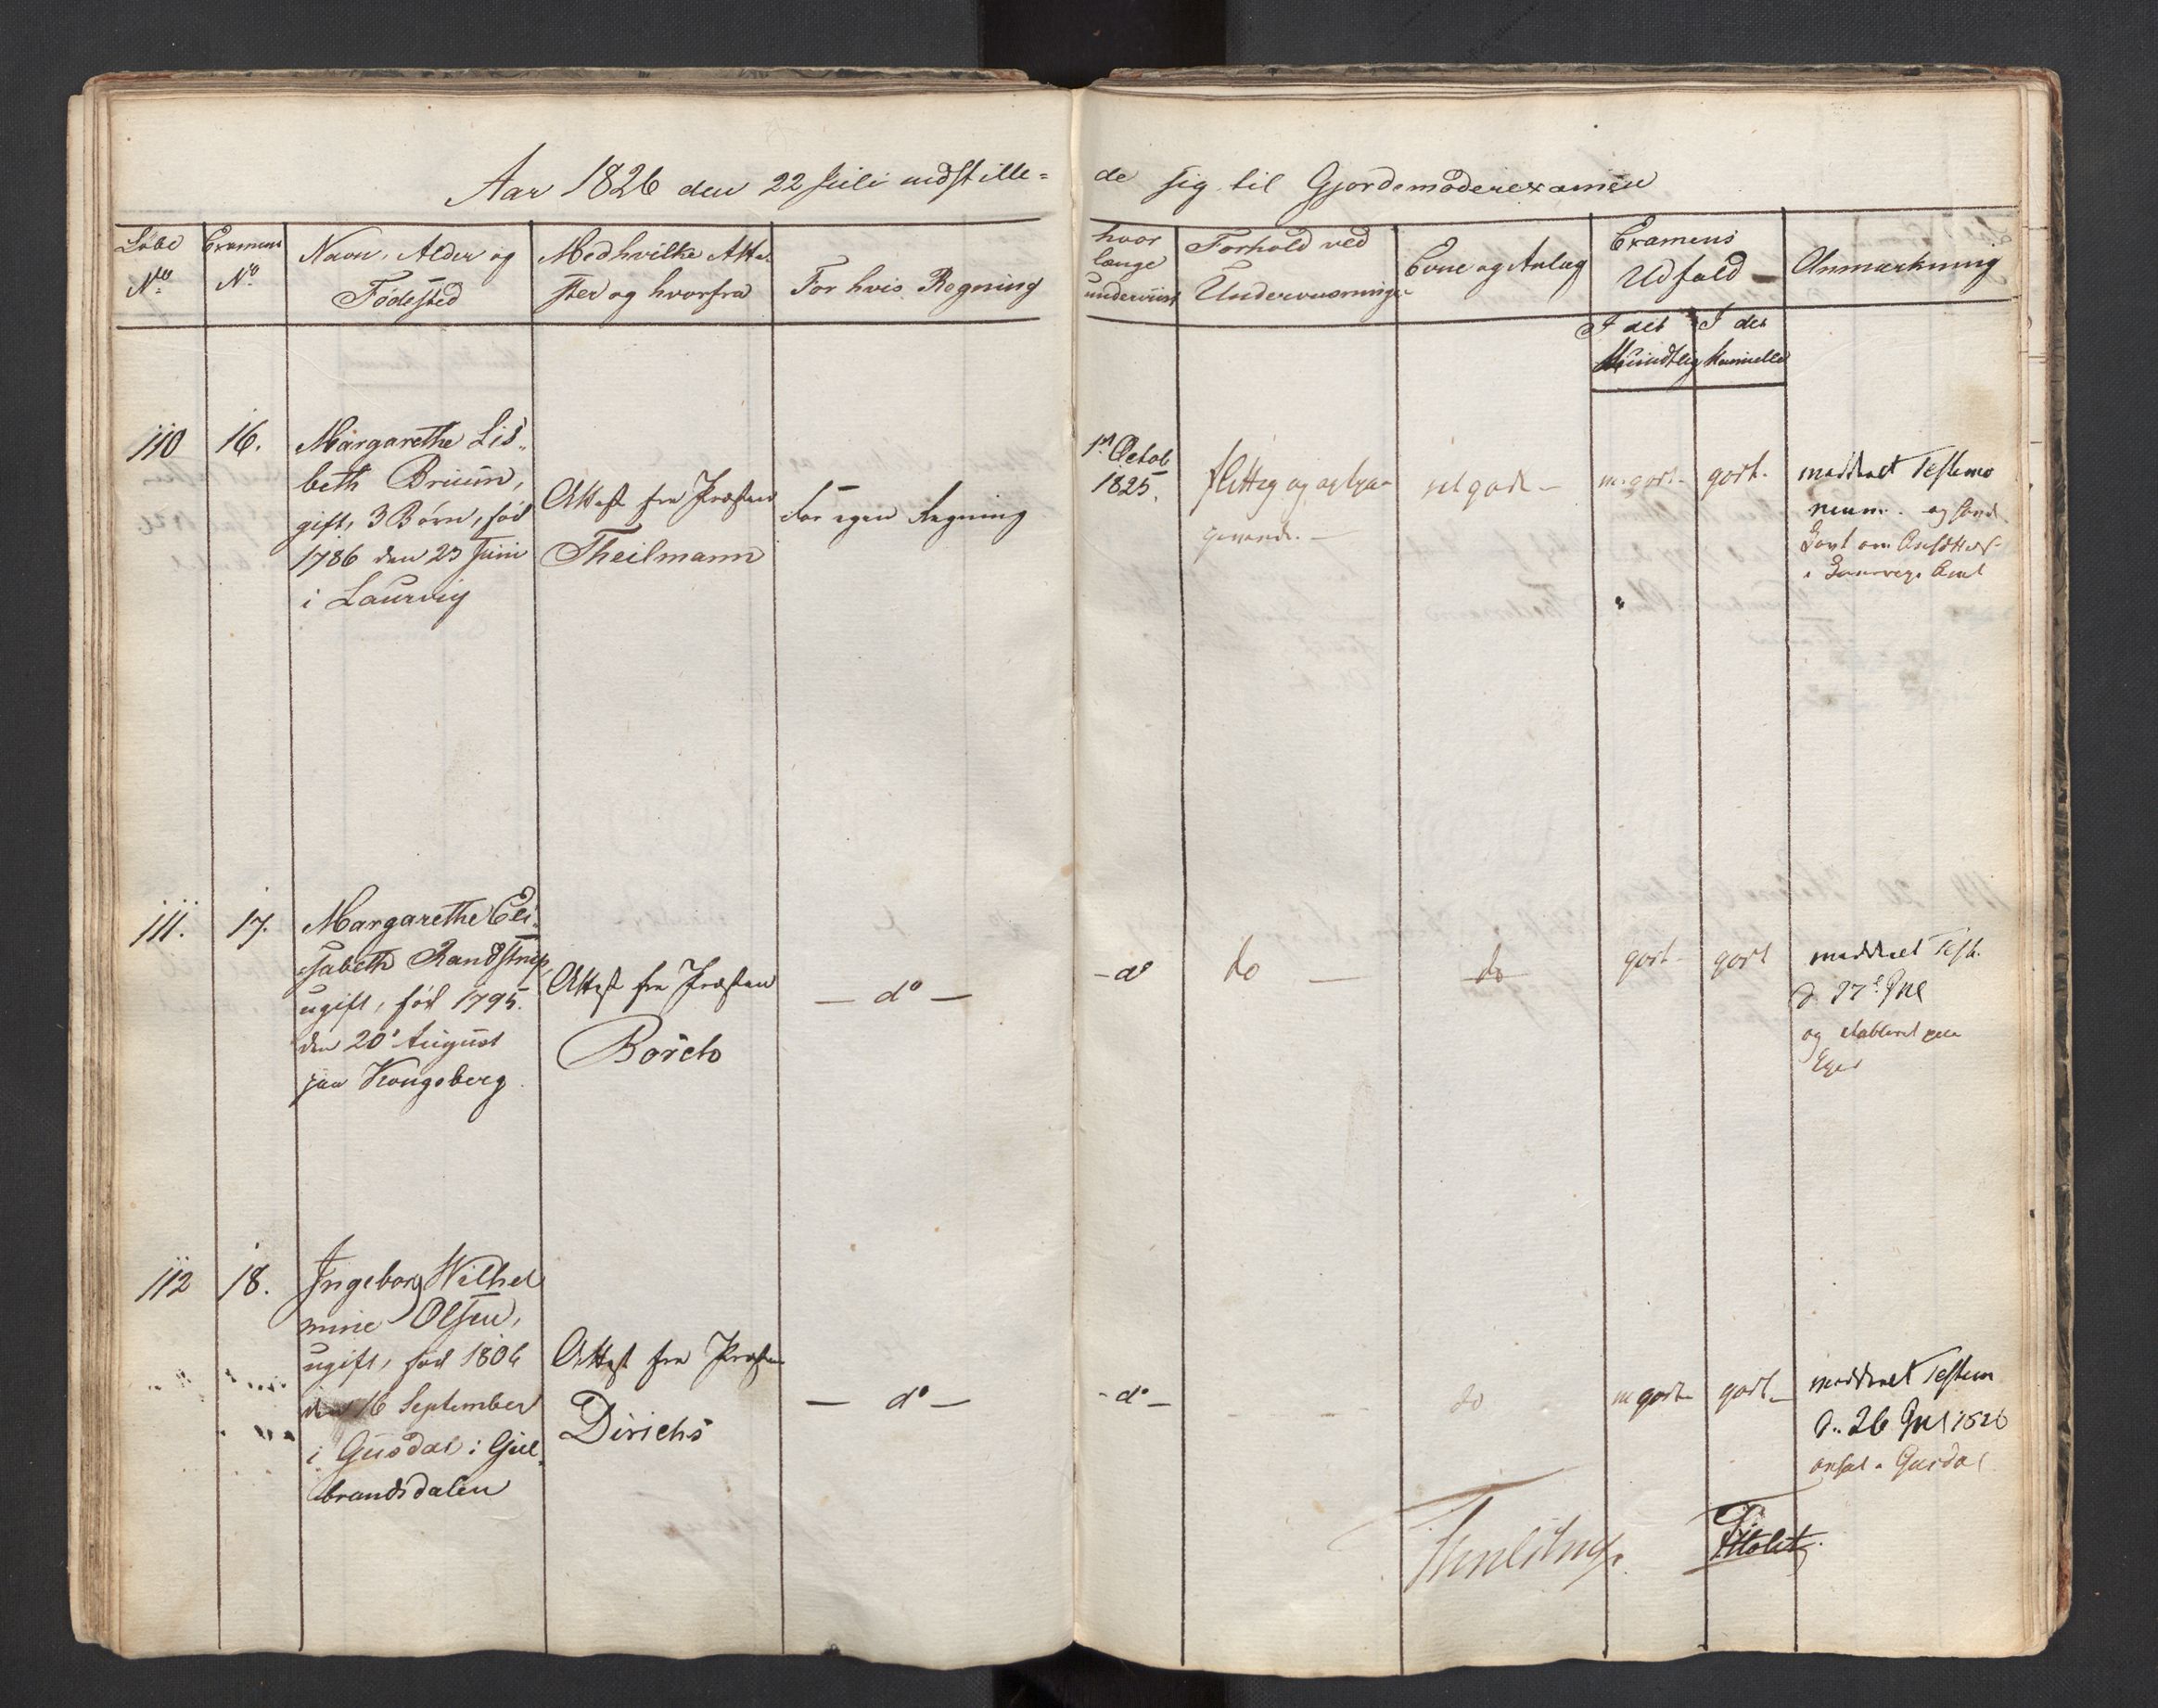 Aar 1826 den 22 Juli indstille=
de sig til Gjordemoderexamen
Løbe
No
Examens
No
Navn, Alder og
Fødested
Med hvilke Atte-
ster og hvorfra
For hvis Regning
hvor
længe
underviist
Forhold ved
Undervisningen
Evne og Anlæg
Examens
Udfald
I det
Mundtlig
I det
Manuelle
Anmærkning
110
16.
Margarethe Lis-
beth Bruun,
gift, 3 Børn, fød
1786 den 23 Juni
i Laurvig
Attest fra Præsten
Theilmann
For egen Regning
1st Octob
1825.
flittig og
ret godt -
m. godt -
godt -
meddeelt Testimo
nium. og
111.
17.
Margarethe Eli-
sabeth Randstrup,
ugift, fød 1795.
den 20t August
paa Kongsberg.
Attest fra Præsten
Borch
- do -
- do
do -
do
godt -
godt
meddeelt Test.
og etableret paa
Eger
112
18.
Ingeborg Wilhel
mine Olsen,
ugift, fød 1806
den 16 September
i Gusdal i Gul-
brandsdalen
Attest fra Præsten
Dirichs
- do -
- do -
do
m godt -
godt -
meddeelt Testim
d. 26 Jul 1826
ansat i Gusdal
Thulstrup.
Holst